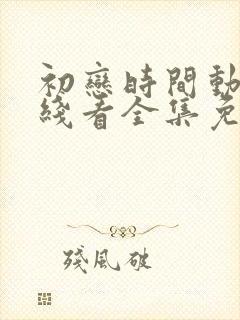 初戀時間動
綫看全集免
殘風破